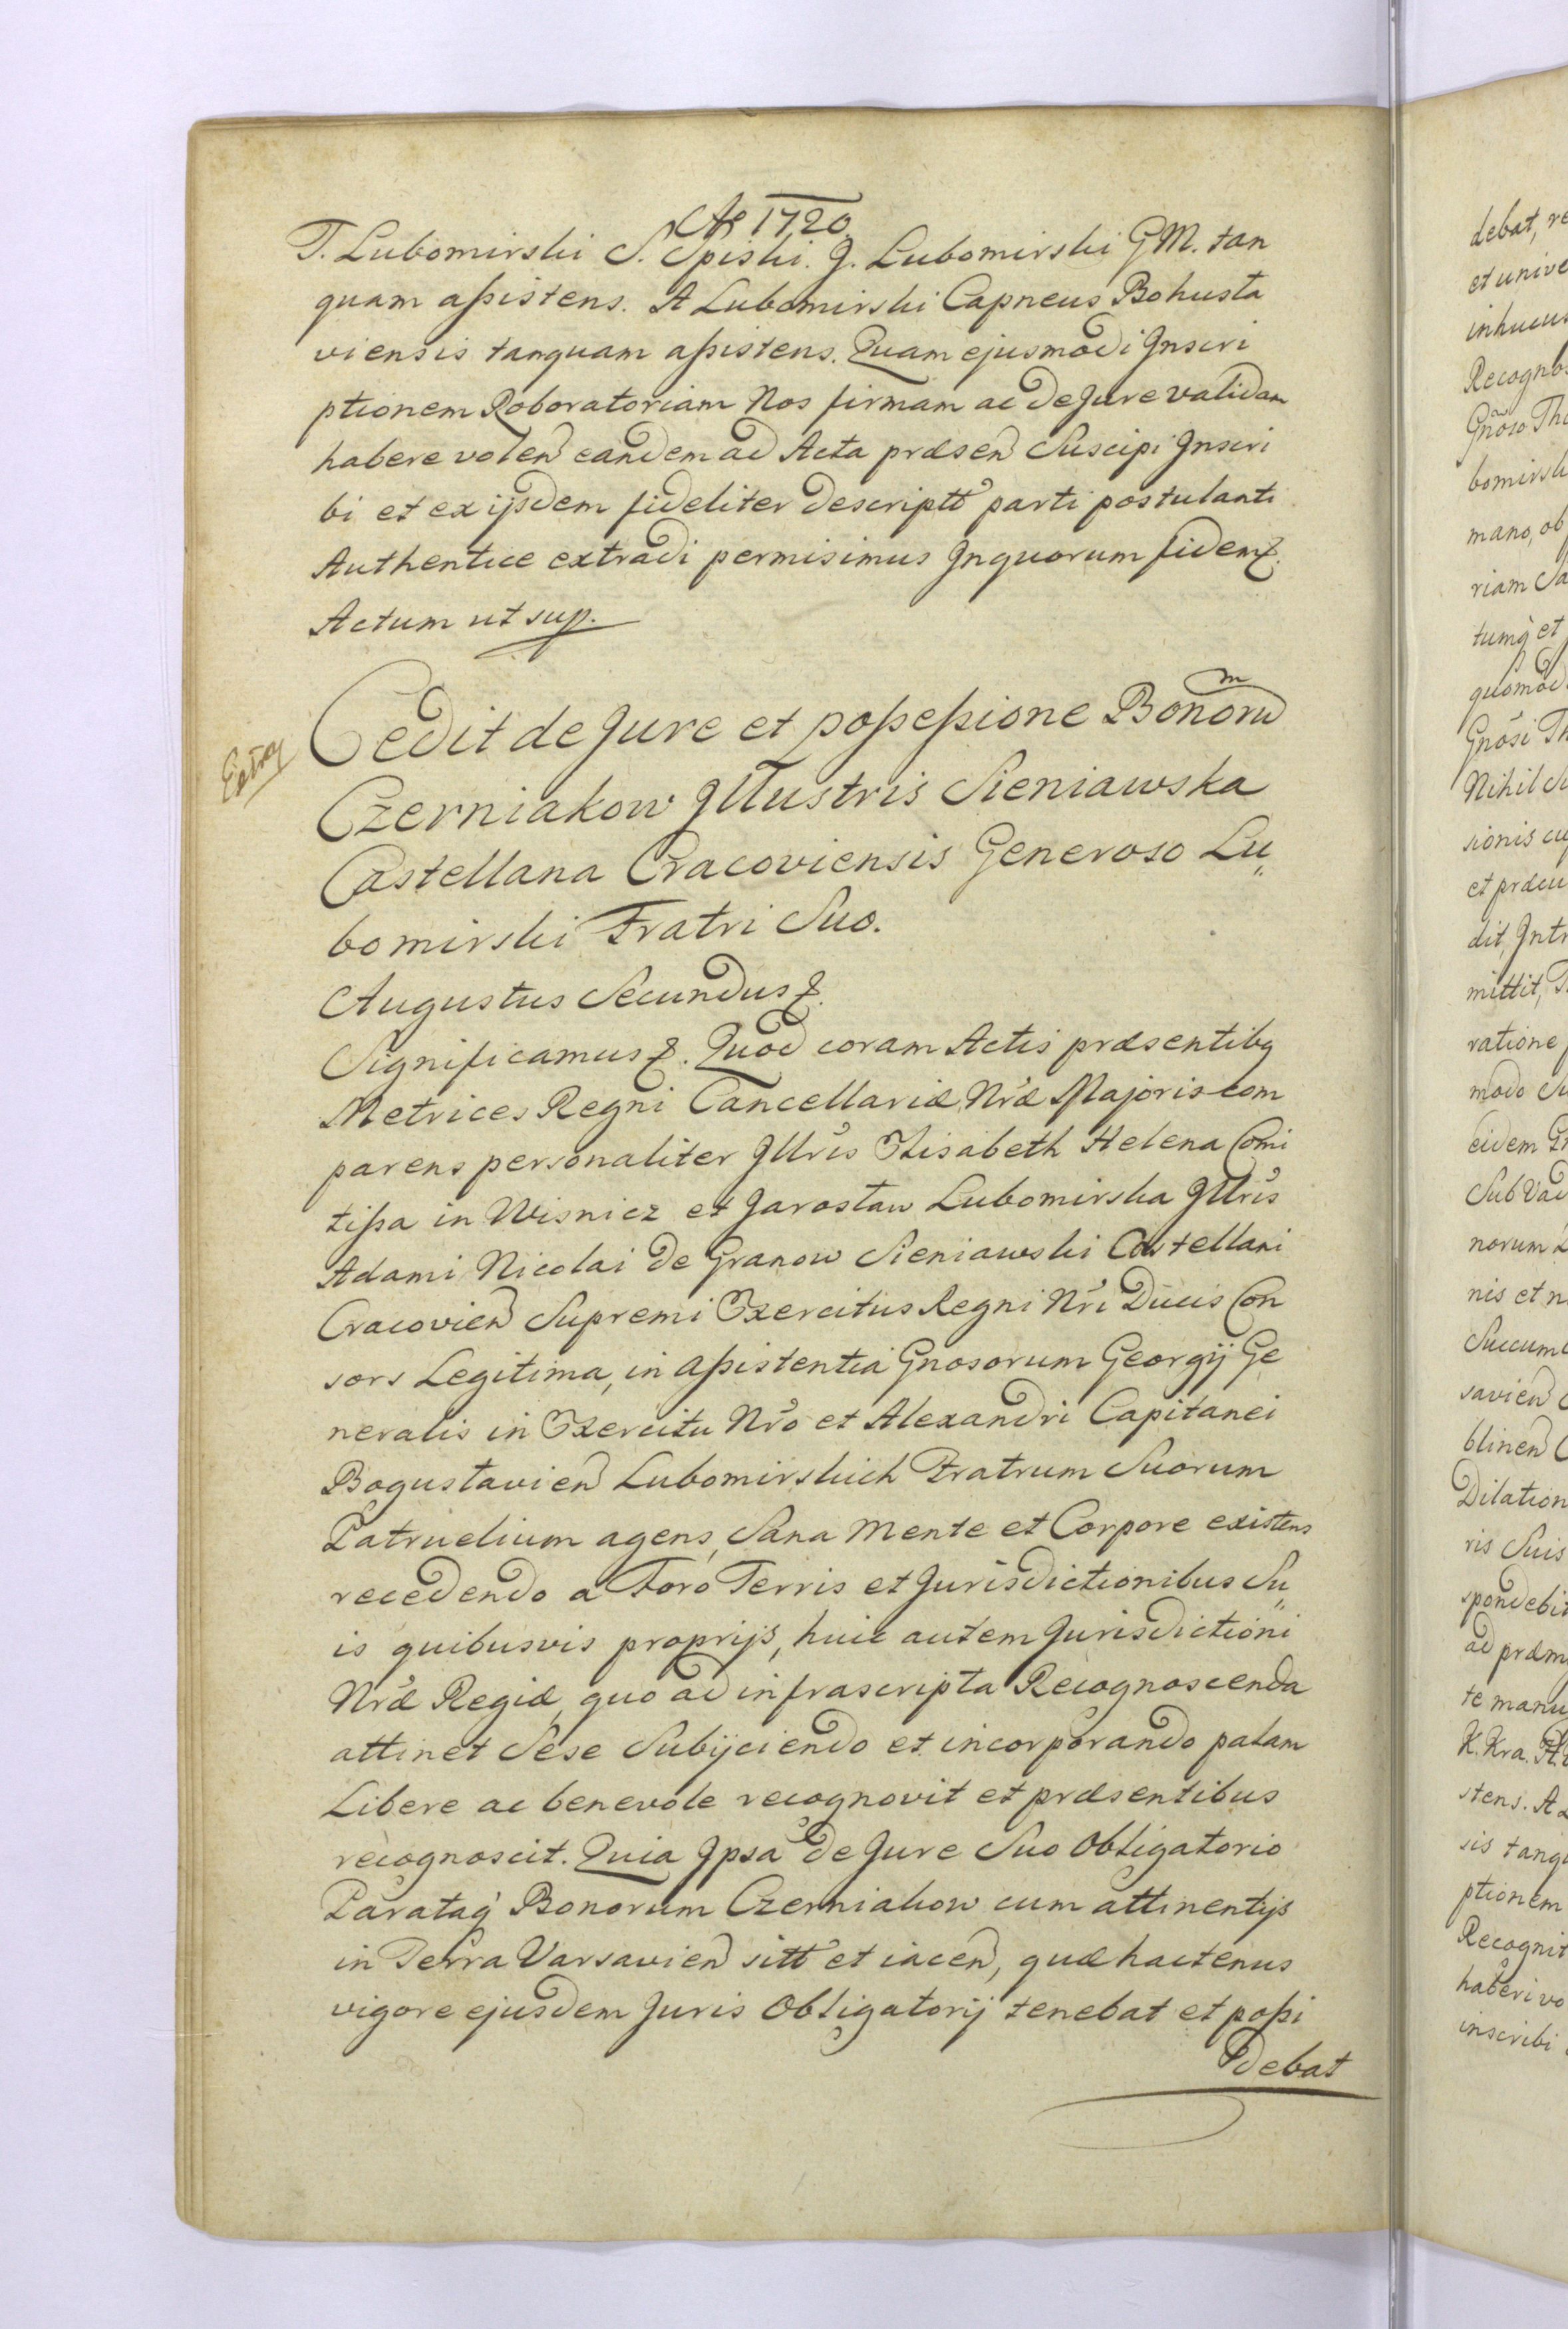 Ao 1720.
T. Lubomirski S. Spiski. J. Lubomirski GM. tan
quam assistens. A Lubomirski Capneus Bohusla
viensis tanquam assistens. Quam ejusmodi Inscri
ptionem Roboratoriam Nos firmam ac de Jure validam
habere volen eandem ad Acta præsen Suscipi Inscri
bi et ex ijsdem fideliter descriptt parti postulanti
Authentice extradi permisimus Inquorum fidem &.
Actum ut sup.
Cedit de Jure et possessione Bonoru
m
Extray
Czerniakow Illustris Sieniawska
Castellana Cracoviensis Generoso Lu„
bomirski Fratri Suo.
Augustus Secundus &.
Significamus &. Quod coram Actis præsentibq
Metrices Regni Cancellariæ Nræ Majoris com
parens personaliter Illris Elisabeth Helena Comi
tissa in Wisnicz et Jaroslaw Lubomirska Illris
Adami Nicolai de Granow Sieniawski Castellani
Cracovien Supremi Exercitus Regni Nri Ducis Con
sors Legitima, in assistentia Gnosorum Georgij Ge
neralis in Exercitu Nro et Alexandri Capitanei
Boguslavien Lubomirskich Fratrum Suorum
Patruelium agens, Sana Mente et Corpore existens
recedendo a Foro Terris et Jurisdictionibus Su„
is quibusvis proprijs, huic autem Jurisdictioni
Nræ Regiæ, quo ad infrascripta Recognoscenda
attinet Sese Subijciendo et incorporando palam
Libere ac benevole recognovit et præsentibus
recognoscit. Quia Ipsa de Jure Suo Obligatorio
Parataq Bonorum Czerniakow cum attinentijs
in Terra Varsavien sitt et iacen, quæ hactenus
vigore ejusdem Juris Obligatorij tenebat et possi
debat
debat, re
et unive
inhucus
Recogno
Gnoso Tho
bomirski
mano, ob
riam Sa
tumq et
quomod
Gnosi Th
Nihil Su
sionis cu
et prdeu
dit, Intr
mittit, T
ratione
modo Su
eidem Gn
Sub Vad
norum L
nis et n
Succum
savien
blinen C
Dilation
ris Suis
spondebit
ad præm
te manu
K. Kra. H.
stens. A L
sis tanq
ptionem
Recognit
haberi vo
inscribi